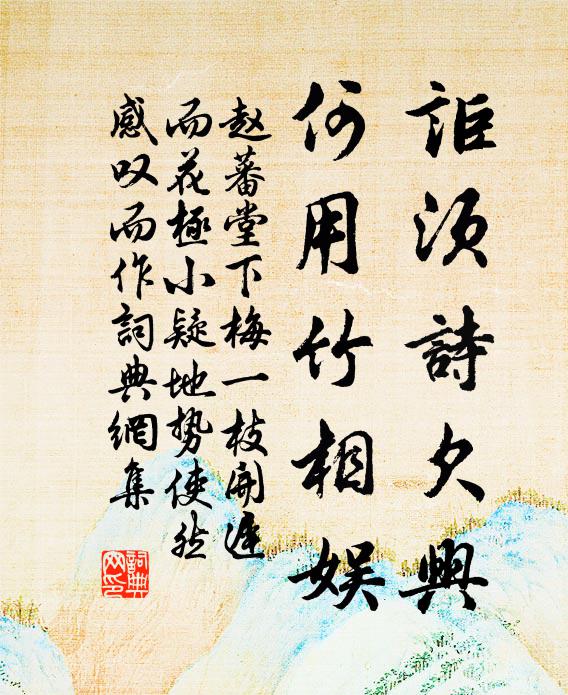 詎須詩久興
何用竹相娛
赵蕃堂下梅一枝開遲
而花極小疑地势使然
感叹而作詞典網集
詞典網印